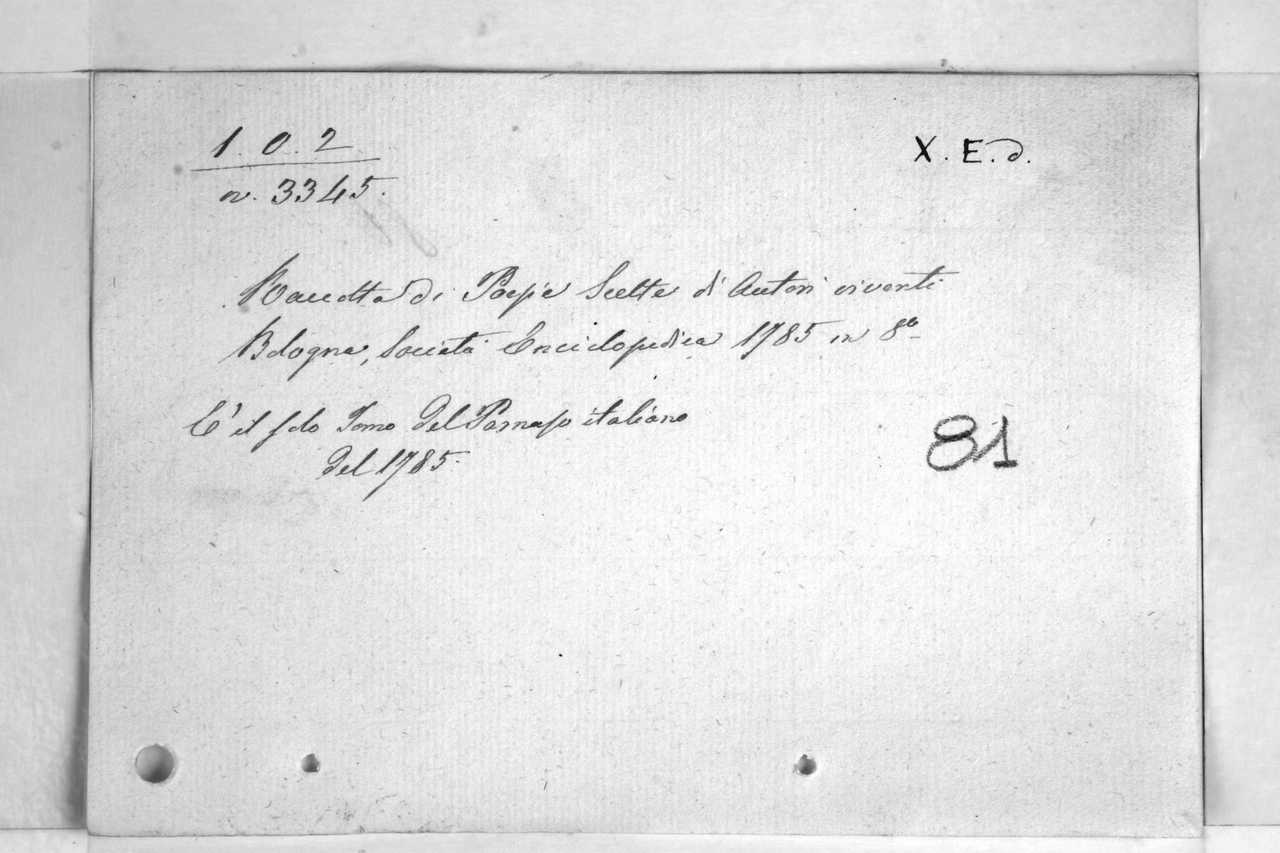 1.0.2
n. 3345.
X. E. d.
Raccolta di Poesie Scelte di Autori viventi
Bologna, Società Enciclopedica 1785 in 8º
E' il Tomo del Parnaso italiano
del 1785.
81